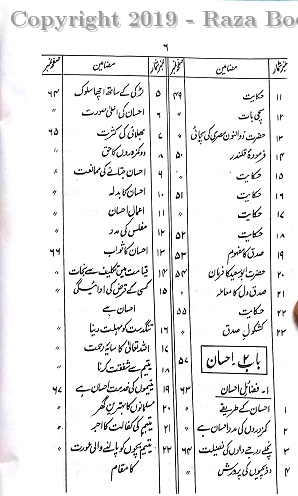 Copyright 2019 - Raza Boo
۶
نمبر شمار مضامین صفحہ نمبر
۱۱ حکایت ۴۹
۱۲ سچی بات "
۱۳ حضرت ذوالنون مصری کی سچائی "
۱۴ فرمودۂ قلندر ۵۰
۱۵ حکایت "
۱۶ حکایت ۵۱
۱۷ حکایت "
۱۸ حکایت ۵۲
۱۹ صدق کا مفہوم ۵۳
۲۰ حضرت ابوسعید کا فرمان ۵۴
۲۱ صدق دل کا معاملہ "
۲۲ حکایت ۵۵
۲۳ کشکول صدق "
باب ۲۔ احسان ۵۷
۱۔ فضائل احسان ۶۳
۱ احسان کے طریقے "
۲ کمزوروں کی مدد احسان ہے "
۳ نچلے درجے والوں کی فضیلت ۶۴
۴ دو بچیوں کی پرورش "
نمبر شمار مضامین صفحہ نمبر
۵ لڑکی کے ساتھ اچھا سلوک ۶۴
۶ احسان کی اعلیٰ صورت "
۷ بھلائی کی کثرت ۶۵
۸ دو کمزوروں کا حق "
۹ احسان جتانے کی ممانعت "
۱۰ احسان کا بدلہ "
۱۱ اعمال احسان "
۱۲ مفلس کی مدد "
۱۳ احسان کا ثواب ۶۶
۱۴ قیامت میں تکلیف سے نجات "
۱۵ کسی کے قرض کی ادائیگی
احسان ہے "
۱۶ تنگدست کو مہلت دینا "
۱۷ اللہ تعالیٰ کا سایۂ رحمت "
۱۸ یتیم سے شفقت کرنا "
۱۹ یتیموں کی خدمت احسان ہے ۶۷
۲۰ مسلمانوں کا بہترین گھر "
۲۱ یتیم کی کفالت کا اجر "
۲۲ یتیم بچوں کو پالنے والی عورت
کا مقام "